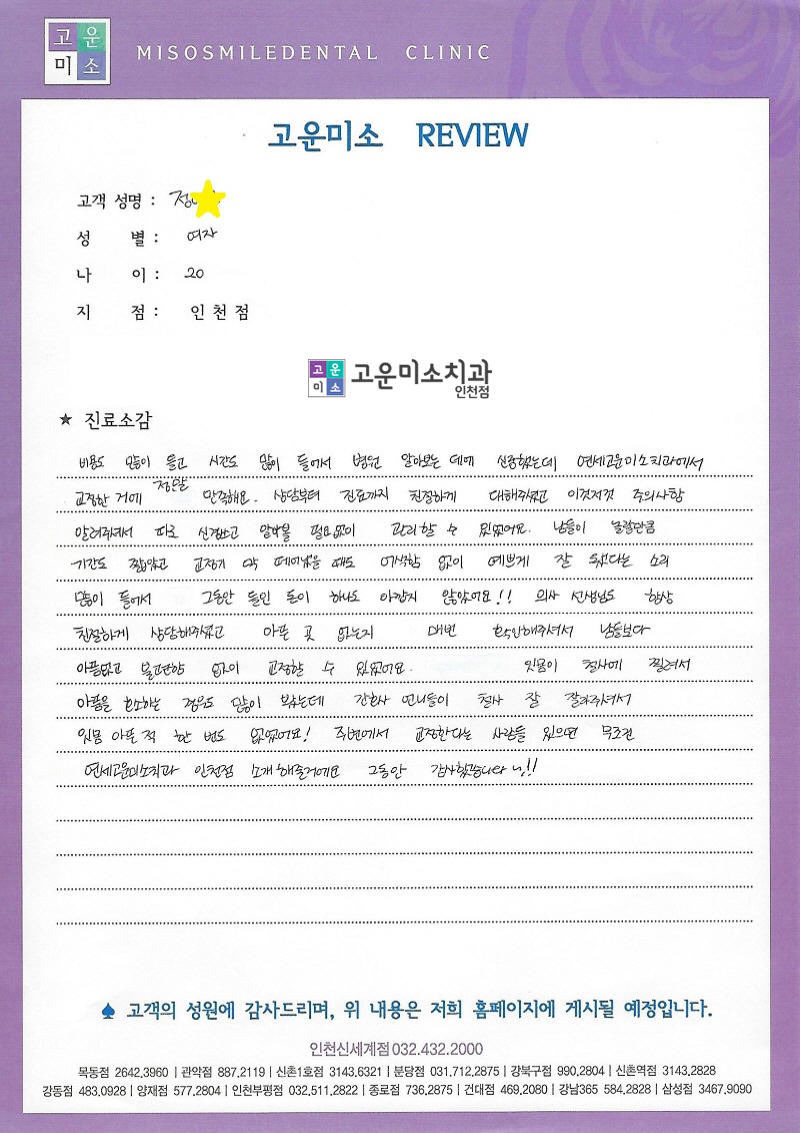 고운
미소
MISOSMILEDENTAL CLINIC
고운미소 REVIEW
고객 성명 : 정
성 별 : 여자
나 이 : 20
지 점 : 인천점
고운
미소
고운미소치과
인천점
★ 진료소감
비용도 많이 들고 시간도 많이 들어서 병원 알아보는 데에 신중했는데 연세고운미소치과에서
교정한 거에 정말 만족해요. 상담부터 진료까지 친절하게 대해주셨고 이것저것 주의사항
알려주셔서 따로 신경쓰고 알아볼 필요없이 관리할 수 있었어요. 남들이 놀랄만큼
기간도 짧았고 교정기 막 떼어냈을 때도 어색함 없이 예쁘게 잘 됐다는 소리
많이 들어서 그동안 들인 돈이 하나도 아깝지 않았어요!! 의사 선생님도 항상
친절하게 상담해주셨고 아픈 곳 없는지 매번 확인해주셔서 남들보다
아픔없고 불편함 없이 교정할 수 있었어요. 잇몸이 철사에 찔려서
아픔을 호소하는 경우도 많이 봤는데 간호사 언니들이 철사 잘 잘라주셔서
잇몸 아픈 적 한 번도 없었어요! 주변에서 교정한다는 사람들 있으면 무조건
연세고운미소치과 인천점 소개해줄거에요 그동안 감사했습니다 !!
♠ 고객의 성원에 감사드리며, 위 내용은 저희 홈페이지에 게시될 예정입니다.
인천신세계점 032.432.2000
목동점 2642.3960 | 관악점 887.2119 | 신촌1호점 3143.6321 | 분당점 031.712.2875 | 강북구점 990.2804 | 신촌역점 3143.2828
강동점 483.0928 | 양재점 577.2804 | 인천부평점 032.511.2822 | 종로점 736.2875 | 건대점 469.2080 | 강남365 584.2828 | 삼성점 3467.9090